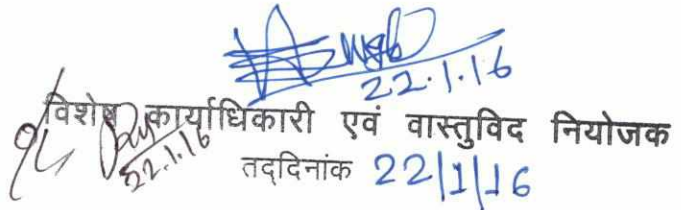 22.1.16
विशेष कार्याधिकारी एवं वास्तुविद नियोजक
22.1.16
तद्दिनांक 22/1/16